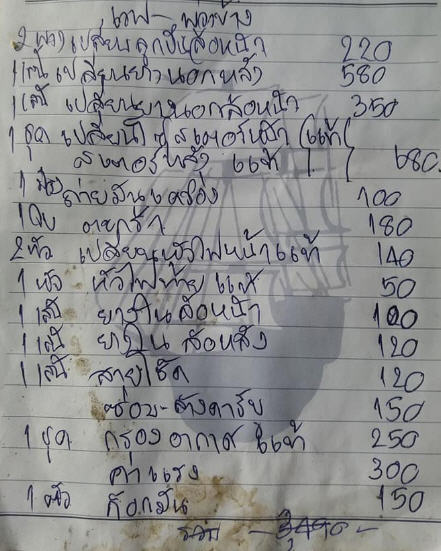 เวฟ - พ่วงข้าง
2 ฝา เปลี่ยนลูกปืนล้อหน้า 220
1 เส้น เปลี่ยนยางนอกหลัง 580
1 เส้น เปลี่ยนยางนอกล้อหน้า 350
1 ชุด เปลี่ยนโซ่ สเตอร์หน้า (แท้)
สเตอร์หลัง แท้ 680.
1 ถ่ายน้ำมันเครื่อง 100
1 ใบ ตะกร้า 180
2 หัว เปลี่ยนหัวไฟหน้าแท้ 140
1 หัว หัวไฟท้าย แท้ 50
1 เส้น ยางในล้อหน้า 100
1 เส้น ยางใน ล้อหลัง 120
1 เส้น สายโช๊ค 120
ซ่อม-ล้างคาร์บู 150
1 ชุด กรองอากาศ แท้ 250
ค่าแรง 300
1 หัว ก๊อกน้ำมัน 150
รวม - 3,490 -